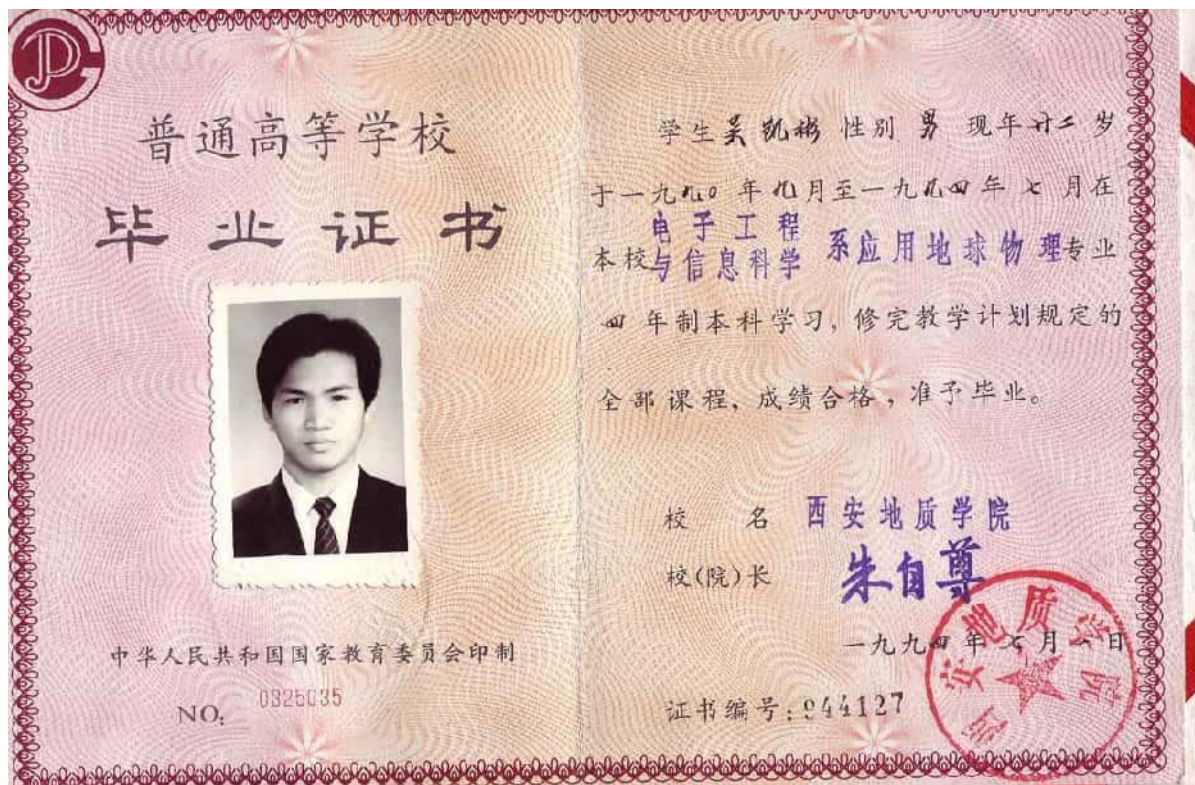 普通高等学校
毕业证书
中华人民共和国国家教育委员会印制
NO:
学生吴凯彬 性别 男 现年廿二岁
于一九九0年九月至一九九四年七月在
本校电子工程与信息科学系应用地球物理专业
四年制本科学习,修完教学计划规定的
全部课程,成绩合格,准予毕业。
校 名 西安地质学院
校(院)长 朱自尊
一九九四年七月一日
证书编号:944127
西安地质学院